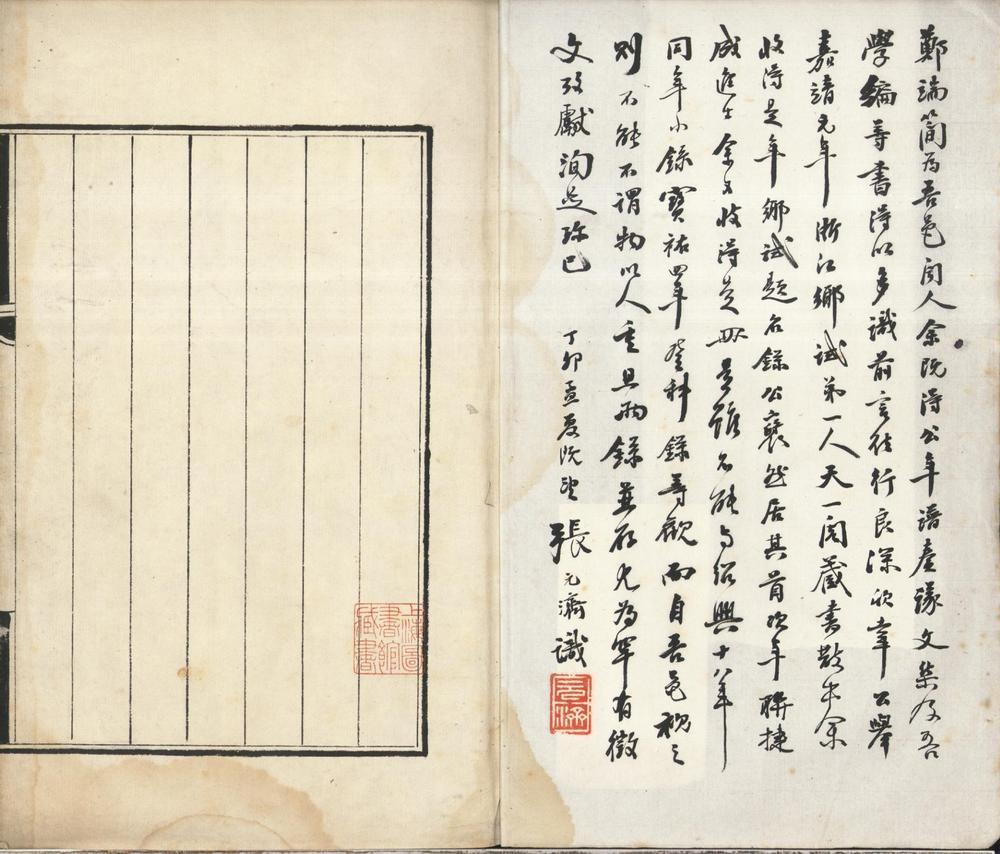 鄭端簡為吾邑聞人余既得公年譜奏議文集及吾
學編等書得以多識前言往行良深欣幸公舉
嘉靖元年浙江鄉試第一人天一閣藏書散出余
收得是年鄉試題名錄公裒然居其首次年聯捷
成進士余又收得是冊是雖不能與紹興十八年
同年小錄寶祐四年登科錄等觀而自吾邑視之
則不能不謂物以人重且兩錄並存尤為罕有徵
文攷獻洵足珍已
丁卯孟夏既望 張元濟識
上海圖書館藏書